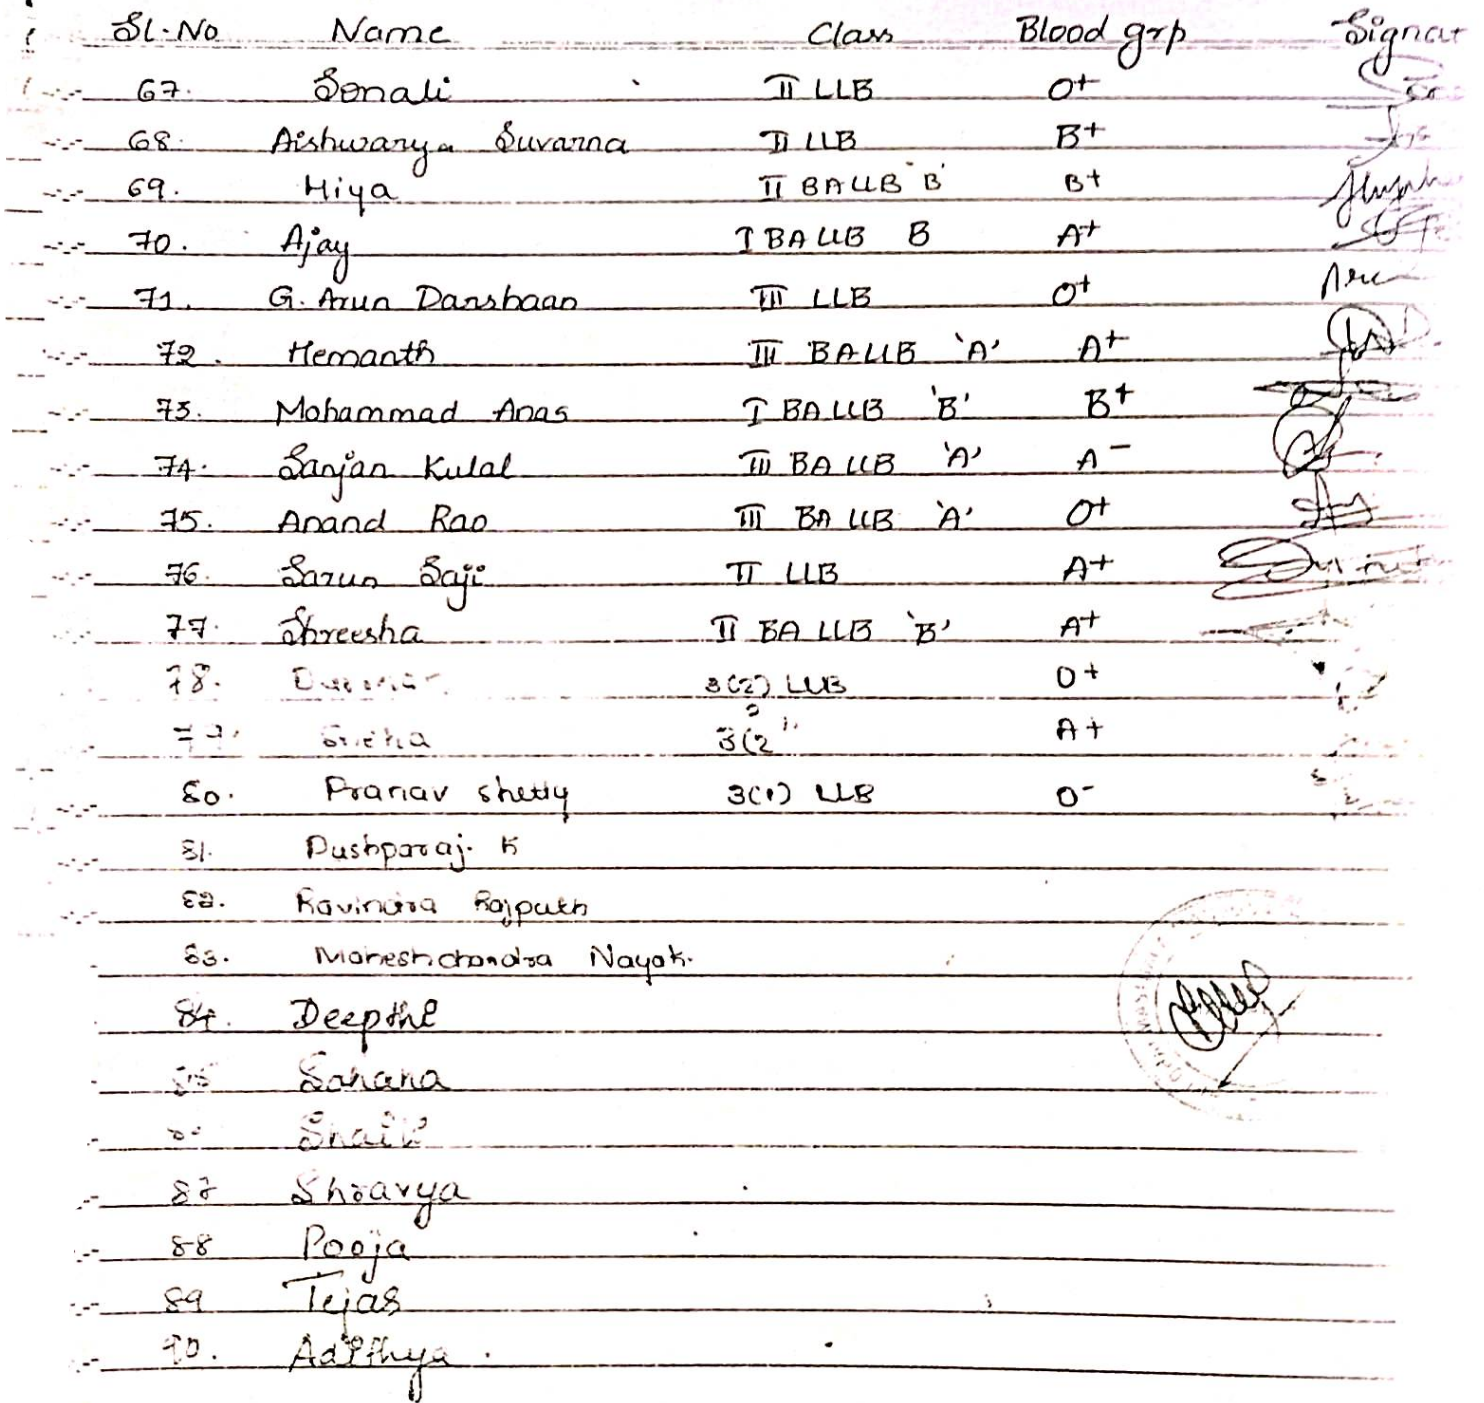 Sl.No Name Class Blood grp Signat
67. Sonali II LLB O+
68. Aishwarya Suvarna II LLB B+
69. Hiya II BALLB 'B' B+
70. Ajay I BA LLB B A+
71. G. Arun Darshaan III LLB O+
72. Hemanth III BALLB 'A' A+
73. Mohammad Anas I BA LLB 'B' B+
74. Sanjan Kulal III BA LLB 'A' A-
75. Anand Rao III BA LLB 'A' O+
76. Sarun Saji II LLB A+
77. Shreesha II BA LLB 'B' A+
78. 3(2) LLB O+
79. 3(2 A+
80. Pranav Shetty 3(1) LLB O-
81. Pushparaj. K
82. Ravindra Rajputh
83. Maheshchandra Nayak.
84. Deepthi
85 Sahana
Shaik
87 Shravya
88 Pooja
89 Tejas
90. Adithya.